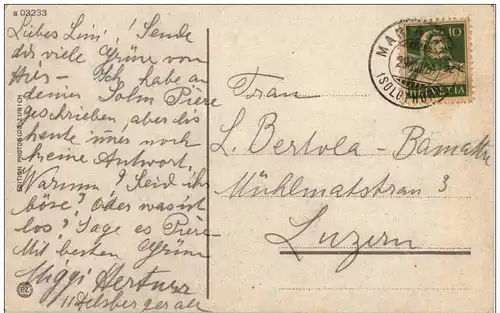 a 03233
Liebes Lini! Sende
dir viele Grüße von
hier – Ich habe an
deinen Sohn Piere
geschrieben, aber bis
heute immer noch
keine Antwort.
Warum? Seid ihr
böse? Oder was ist
los? Sage es Piere
Mit besten Grüßen
Miggi
Delsbergerall
EDITION PHOTOGLOB ZÜRICH
PZ
Frau
L. Bertola-
Mühlmattstrass 3
Luzern
10
HELVETIA
MAR
(SOLOTHUR